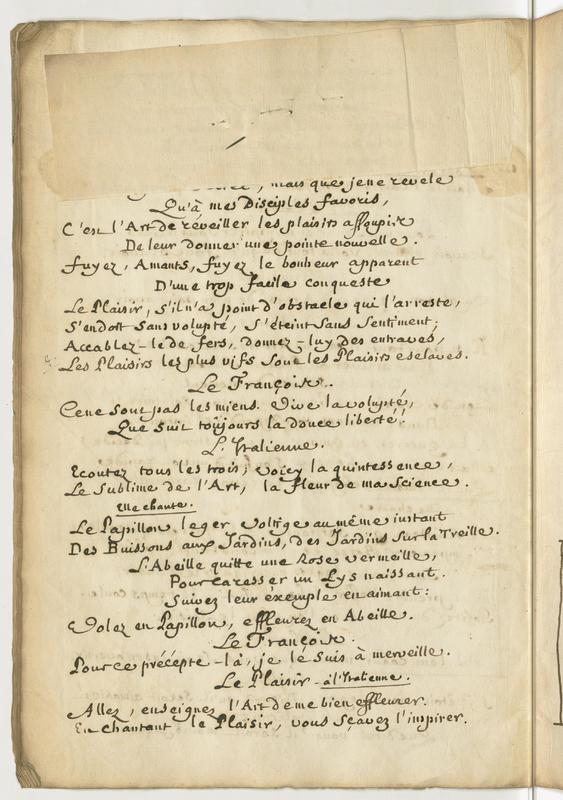 , mais que je ne revele
Qu'à mes Disciples favoris,
C'est l'Art de réveiller les plaisirs assoupis
De leur donner une pointe nouvelle.
fuyez, Amants, fuyez le bonheur apparent
D'une trop facile conqueste
Le Plaisir, s'il n'a point d'obstacle qui l'arreste,
S'endort sans volupté, s'éteint sans sentiment;
Accablez-le de fers, donnez-luy des entraves,
Les Plaisirs les plus vifs sont les Plaisirs esclaves.
Le François.
Ce ne sont pas les miens. Vive la volupté,
Que suit toûjours la douce liberté!
L'Italienne.
Ecoutez tous les trois; voicy la quintessence,
Le Sublime de l'Art, la fleur de ma Science.
elle chante.
Le Papillon leger voltige au même instant
Des Buissons aux Jardins, des Jardins sur la Treille.
L'Abeille quitte une Rose vermeille,
Pour caresser un Lys naissant.
Suivez leur éxemple en aimant:
Volez en Papillon, effleurez en Abeille.
Le François.
Pour ce précepte-là, je le suis à merveille.
Le Plaisir - à l'Italienne.
Allez, enseignez l'Art de me bien effleurer.
En chantant le Plaisir, vous sçavez l'inspirer.